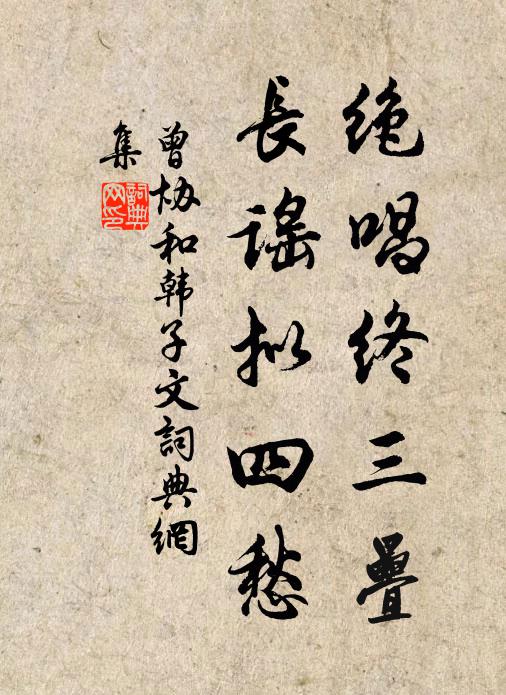 绝唱终三疊
長谣拟四愁
曾协和韩子文詞典網
集
詞典
网印